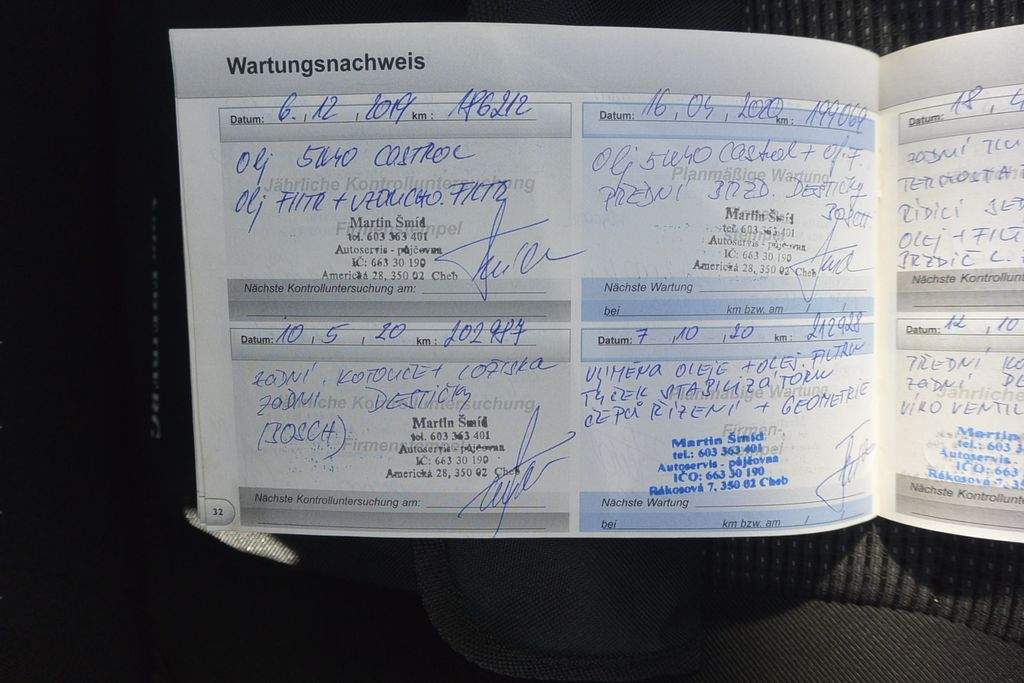 Wartungsnachweis
Datum: 6. , 12 , 2019 km : 196212
Olej 5W40 CASTROL
Jährliche Kontrolluntersuchung
Olej FILTR + VZDUCHO. FILTR
Firmenstempel
Martin Šmíd
tel. 603 363 401
Autoservis - půjčovna
IČ: 663 30 190
Americká 28, 350 02 Cheb
Nächste Kontrolluntersuchung am:
Datum: 16 , 04 , 2020 km : 199069
Olej 5W40 Castrol + Ol. F.
Planmäßige Wartung
PŘEDNÍ BRZD. DESTIČKY
BOSCH
Martin Šmíd
tel. 603 363 401
Autoservis - půjčovna
IČ: 663 30 190
Americká 28, 350 02 Cheb
Nächste Wartung
bei km bzw. am / /
Datum: 10 , 5 , 20 km : 202977
ZADNÍ . KOTOUČE + LOŽISKA
ZADNÍ DESTIČKY
Jährliche Kontrolluntersuchung
(BOSCH)
Firmenstempel
Martin Šmíd
tel. 603 363 401
Autoservis - půjčovna
IČ: 663 30 190
Americká 28, 350 02 Cheb
Nächste Kontrolluntersuchung am:
Datum: 7 , 10 , 20 km : 212928
VÝMĚNA OLEJE + OLEJ. FILTRU
TYČEK STABILIZÁTORU
Planmäßige Wartung
ČEPŮ ŘÍZENÍ + GEOMETRIE
Firmen-
Martin Šmíd
tel.: 603 363 401
Autoservis - půjčovna
IČO: 663 30 190
Rákosová 7, 350 02 Cheb
Nächste Wartung
bei km bzw. am / /
32
Datum: 18 ,
ZADNÍ
TERMOSTA
ŘÍDÍCÍ
OLEJ + FILT
Nächste Kontrollun
Datum: 12 , 10
PŘEDNÍ
ZADNÍ
VÍKO VENTIL
Martin
tel.: 603 3
Autoservis
IČO: 66
Rákosová 7, 3
Nächste Kontrollunt